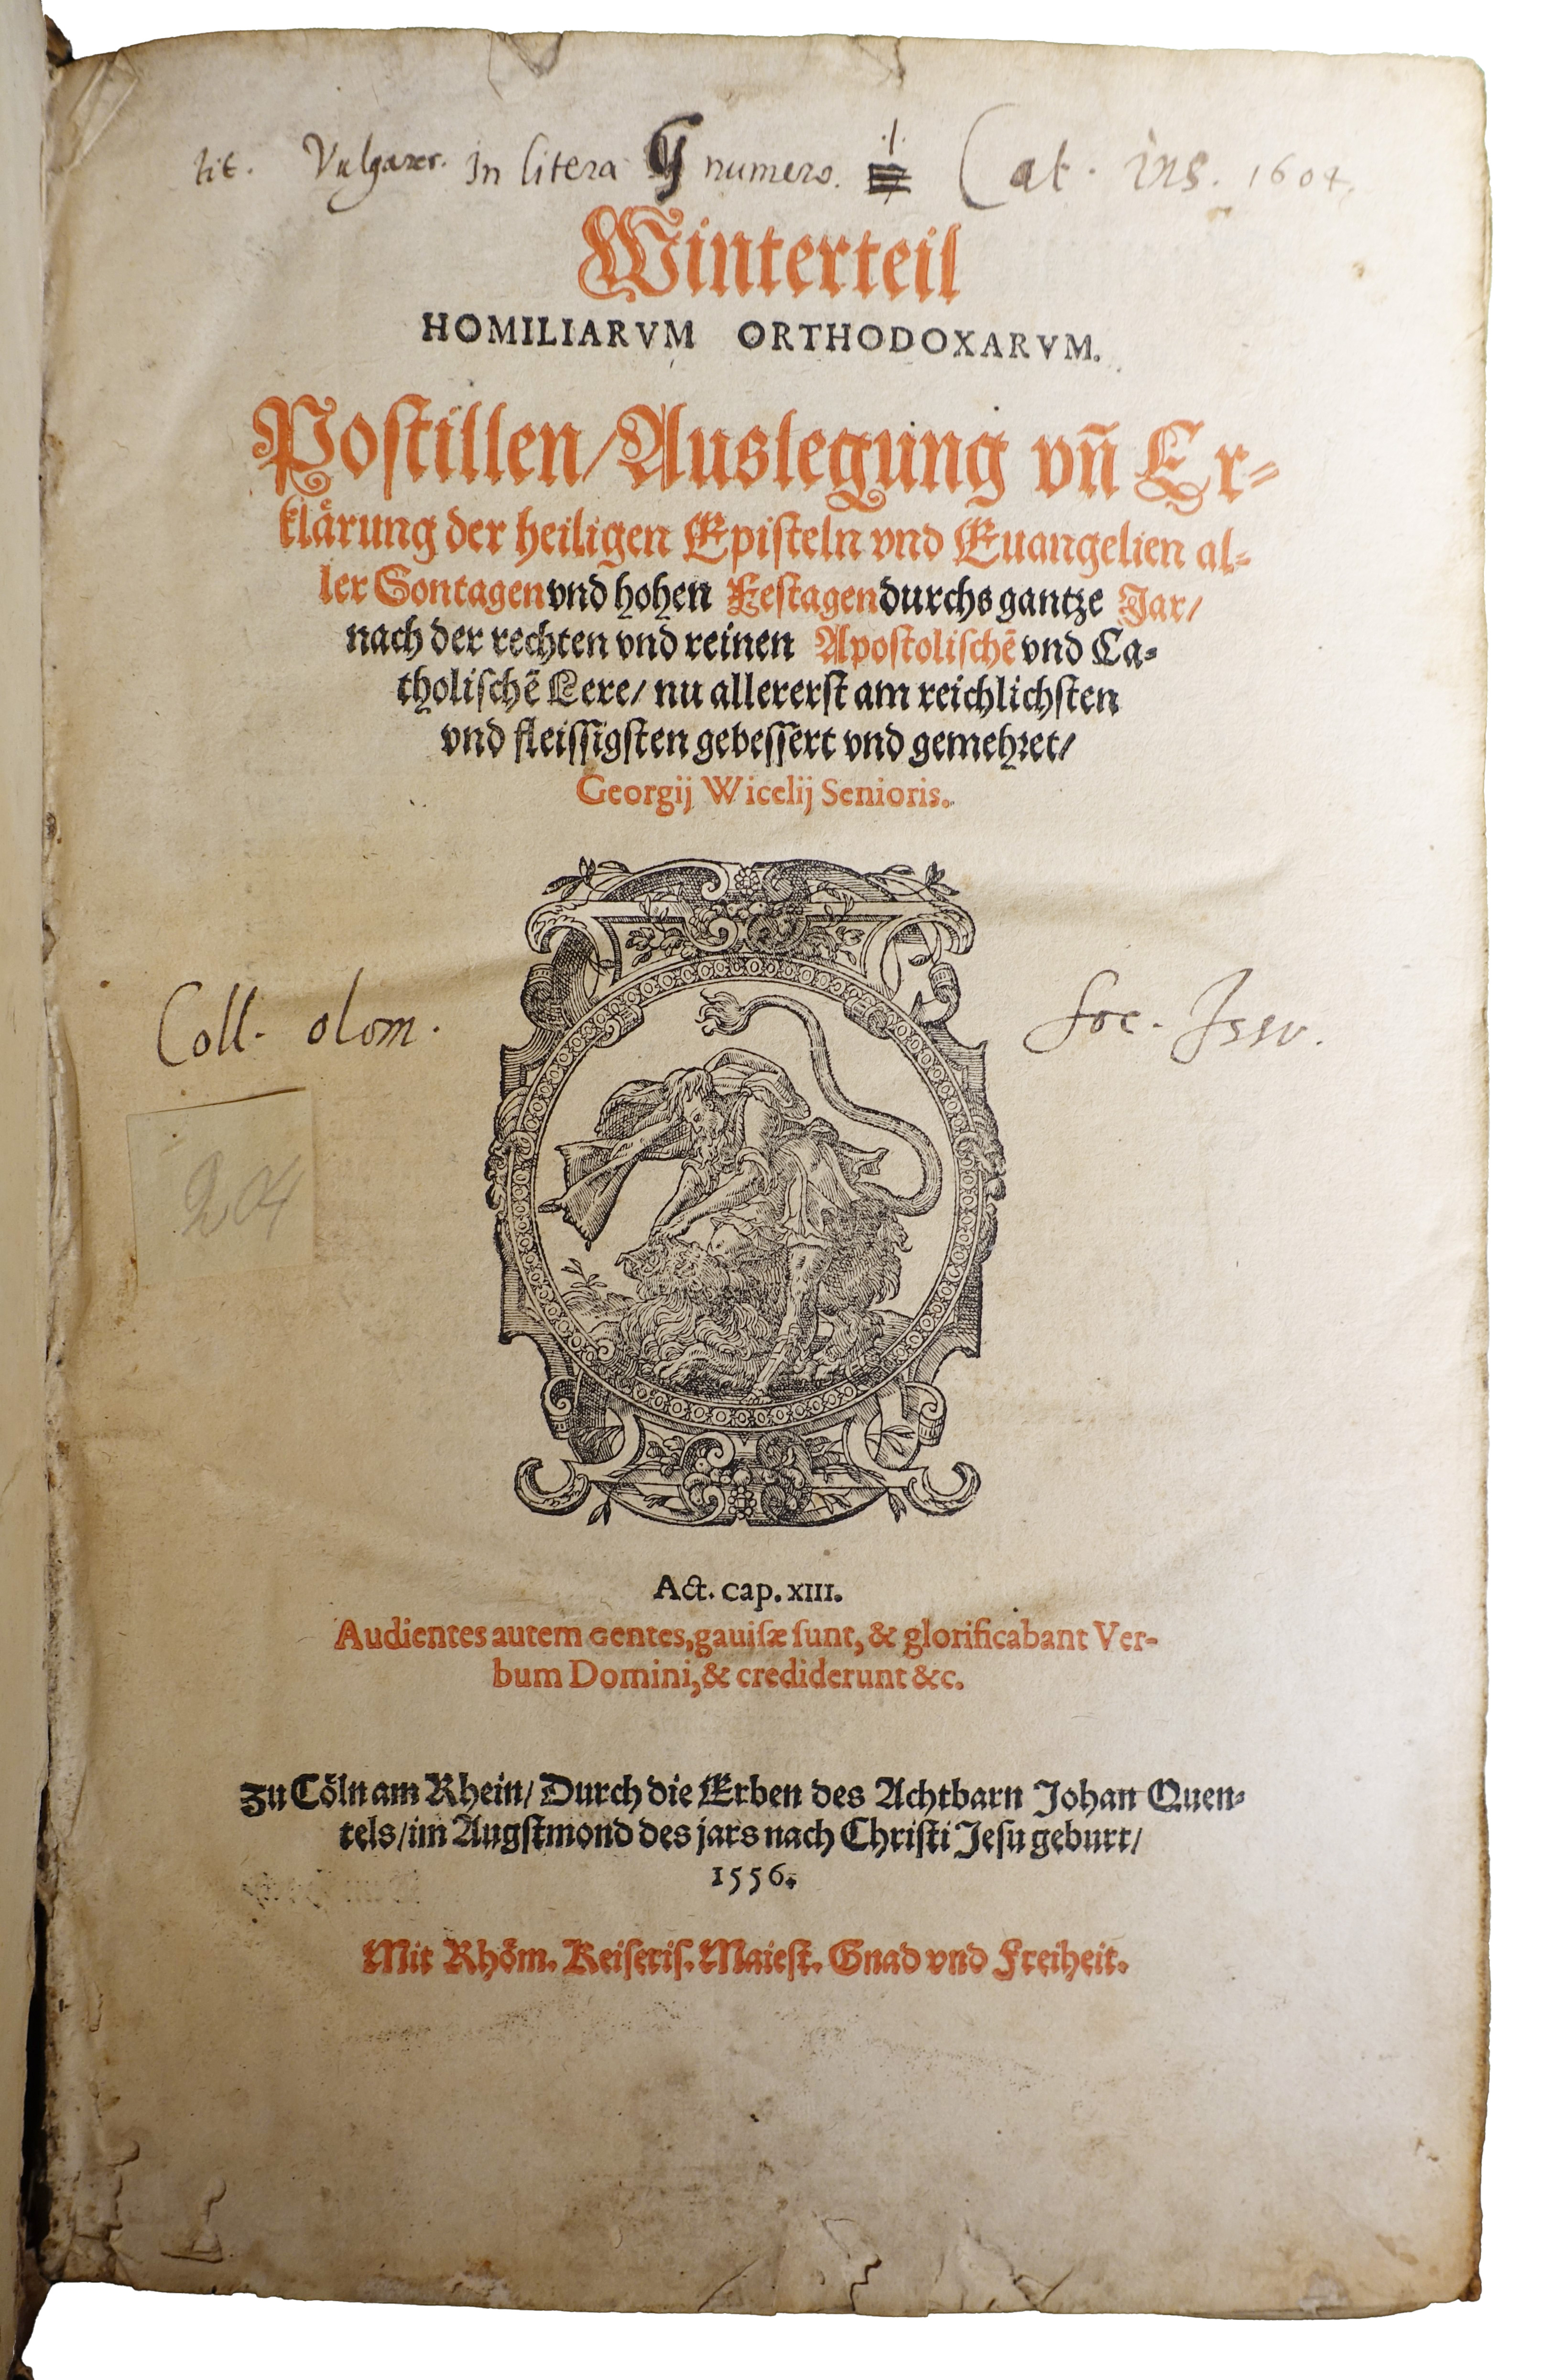 tit. Vulgares. In litera G numero. .1. Cat. ins. 1604.
Winterteil
HOMILIARVM ORTHODOXARVM.
Postillen/Auslegung vñ Er-
klärung der heiligen Episteln vnd Euangelien al-
ler Sontagen vnd hohen Festagen durchs gantze Jar/
nach der rechten vnd reinen Apostolischē vnd Ca-
tholischē Lere/ nu allererst am reichlichsten
vnd fleissigsten gebessert vnd gemehret/
Georgij Wicelij Senioris.
Coll. olom. Soc. Jesu.
204
Act. cap. XIII.
Audientes autem Gentes, gauisæ sunt, & glorificabant Ver-
bum Domini, & crediderunt &c.
Zu Cöln am Rhein/ Durch die Erben des Achtbarn Johan Quen-
tels/im Augstmond des jars nach Christi Jesu geburt/
1556.
Mit Rhöm. Keiseris. Maiest. Gnad vnd Freiheit.